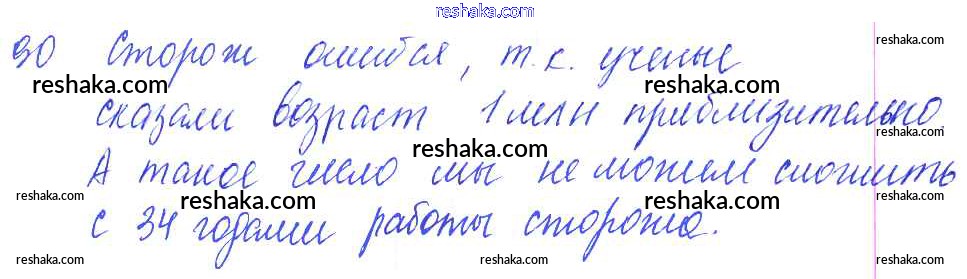 reshaka.com
30 Сторож ошибся, т.к. ученые
reshaka.com
reshaka.com
reshaka.com
сказали возраст 1 млн приблизительно.
reshaka.com
reshaka.com
А такое число мы не можем сложить
reshaka.com
reshaka.com
reshaka.com
с 34 годами работы сторожа.
reshaka.com
reshaka.com
reshaka.com